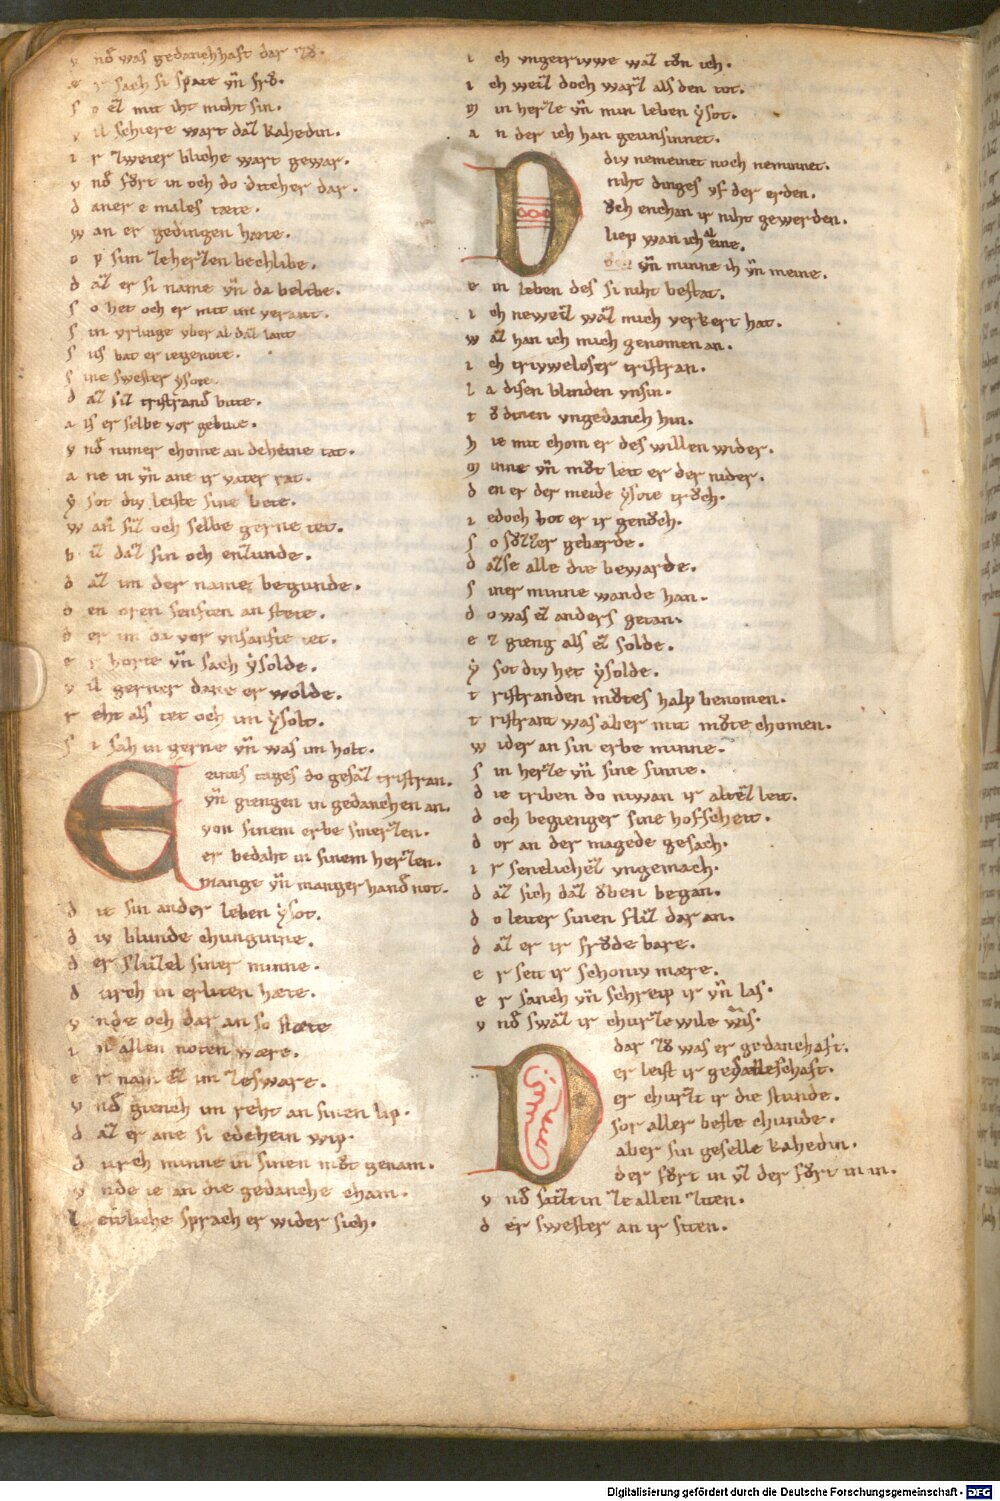 v nd̄ was gedanchhaft dar zů.
e r sach si spate vn̄ frů.
s o ez mit iht moht sin.
v il schiere wart daz kahedin.
i r zweier bliche wart gewar.
v nd̄ fůrt in och do dicher dar.
d aner e males tæte.
w an er gedingen hæte.
o p sim zeherzen bechlibe.
d az er si næme vn̄ da belibe.
s o het och er mit im verant.
s in vrluge vber al daz lant
s us bat er iegenote.
s ine swester ẏsote.
d az siz tristrand̄ bute.
a ls er selbe vor gebute.
v nd̄ nimer chome an deheine tat.
a ne in vn̄ ane ir vater rat.
ẏ sot div leiste sine bete.
w an̄ siz och selbe gerne tet.
v il daz sin och enzunde.
d az im der name begunde.
d en oren senften an stete.
d er im da vor vnsanfte tet.
e r horte vn̄ sach ẏsolde.
v il gerner dane er wolde.
r eht als tet och im ẏsolt.
s i sah in gerne vn̄ was im holt.
E eines tages do gesaz tristran.
vn̄ giengen in gedanchen an.
von sinem erbe smerzen.
er bedaht in sinem herzen.
mange vn̄ manger hand̄ not.
d ie sin ander leben ẏsot.
d iv blunde chunginne.
d er sluzel siner minne.
d urch in erliten hæte.
v nde och dar an so stæte
i n allen noten wære.
e r nam ez im zeswære.
v nd̄ giench im reht an sinen lip.
d az er ane si edehein wip.
d urch minne in sinen můt genam.
v nde ie an die gedanche cham.
l eitliche sprach er wider sich.
i ch vngetriwe waz tůn ich.
i ch weiz doch warz als den tot.
m in herze vn̄ min leben ẏsot.
a n der ich han geunsinnet.
D div nemeinet noch neminnet.
niht dinges vf der erden.
ůch enchan ir niht gewerden.
liep wan ich al eine.
vn̄ minne ih vn̄ meine.
e in leben des si niht bestat.
i ch neweiz waz mich verkert hat.
w az han ich mich genomen an.
i ch triweloser tristran.
l a disen blinden vnsin.
t ů dinen vngedanch hin.
h ie mit chom er des willen wider.
m inne vn̄ můt leit er der nider.
d en er der meide ẏsote trůch.
i edoch bot er ir genůch.
s o sůzzer gebærde.
d azse alle die bewærde.
s iner minne wande han.
d o was ez anders getan.
e z gieng als ez solde.
ẏ sot div het ẏsolde.
t ristranden můtes halp benomen.
t ristrant was aber mit můte chomen.
w ider an sin erbe minne.
s in herze vn̄ sine sinne.
d ie triben do niwan ir altez leit.
d och begienger sine hofscheit.
d or an der magede gesach.
i r senelichez vngemach.
d az sich daz ůben began.
d o leiter sinen fliz dar an.
d az er ir frůde bære.
e r seit ir schoniv mære.
e r sanch vn̄ schreip ir vn̄ las.
v nd̄ swaz ir churzewile was.
D dar zů was er gedanchaft.
er leist ir geselleschaft.
er churzt ir die stunde.
for aller beste chunde.
aber sin geselle kahedin.
der fůrt in vz der fůrt in in.
v nd̄ satzt in ze allen ziten.
d er swester an ir siten.
Digitalisierung gefördert durch die Deutsche Forschungsgemeinschaft - DFG